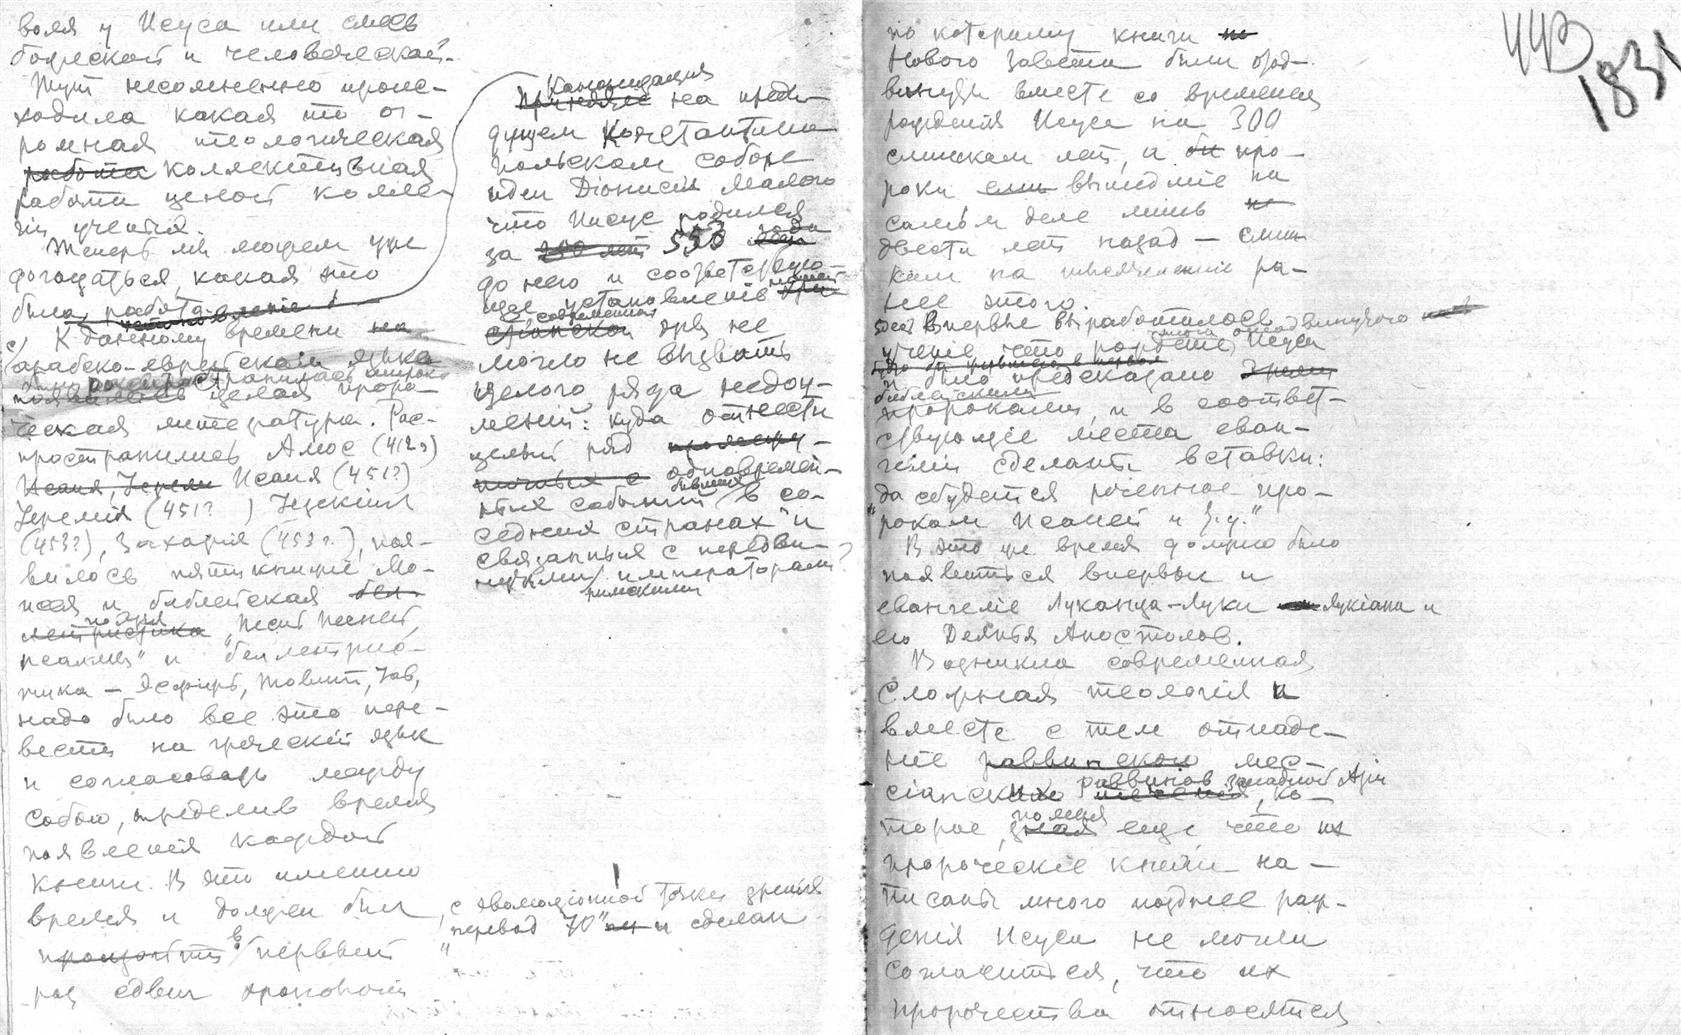 воля у Исуса или смесь
божеской и человеческой.
Тут несомненно проис-
ходила какая то ог-
ромная теологическая
работа коллективная
работа целой колле-
гии ученых.
Теперь мы можем уже
догадаться, какая это
была работа.
К данному времени на
арабско-еврейском языке
было распространилась широко
появилась целая проро-
ческая литература. Рас-
пространились Амос (412г)
Исаия, Иереми Исаия (451?)
Иеремия (451? ) Иезкиил
(453?), Захария (453 г.), поя-
вилось пятикнижие Мо-
исея и библейская бел-
летристика поэзия "Песнь Песней,
псалмы" и "беллетрис-
тика — Эсфирь, Товит, Иов,
надо было все это пере-
вести на греческий язык
и согласовать между
собою, определив время
появления каждой
книги. В это именно
время и должен был
произойти в первый
раз сдвиг хронологии
Канонизация
Принятие на преды-
дущем Константино-
польском соборе
идеи Діонисия Малого
что Иисус родился
за 350 лет 550 года
до него и соответствую-
щее установление нашей хри
стианской современная эры не
могло не вызвать
целого ряда недоу-
мений: куда отнести
целый ряд промежу-
точных с одновремен-
ныя события бывшия в со-
седния странах и
связанныя с передви-
нутыми императорами?
римскими
с эволюционной точки зрения
"перевод 70" он и сделан
по которому книги по
Нового Завета были отод-
винуты вместе со временем
рождения Исуса на 300
слишком лет, а он про-
роки если вышедшие на
самом деле лишь не
двести лет назад — слиш
ком на тысячелетие ра-
нее этого.
Впервые выработалось
учение что рождение Исуса
и было предсказано этими
библейскими
пророками, и в соответ-
ствующие места еван-
гелий сделаны вставки:
"да сбудется реченное про-
роком Исаией и др."
В это же время должно было
появиться впервые и
евангелие Луканца-Луки Лукіана и
его Деянья Апостолов.
Возникла современная
сложная теология и
вместе с тем отпаде-
ние раввинской мес-
сианских раввинов западной Азии, ко-
торые, зная помня еще что их
пророческие книги на-
писаны много позднее рож-
дения Исуса не могли
согласиться, что их
пророчества относятся
ЧЧВ
1831